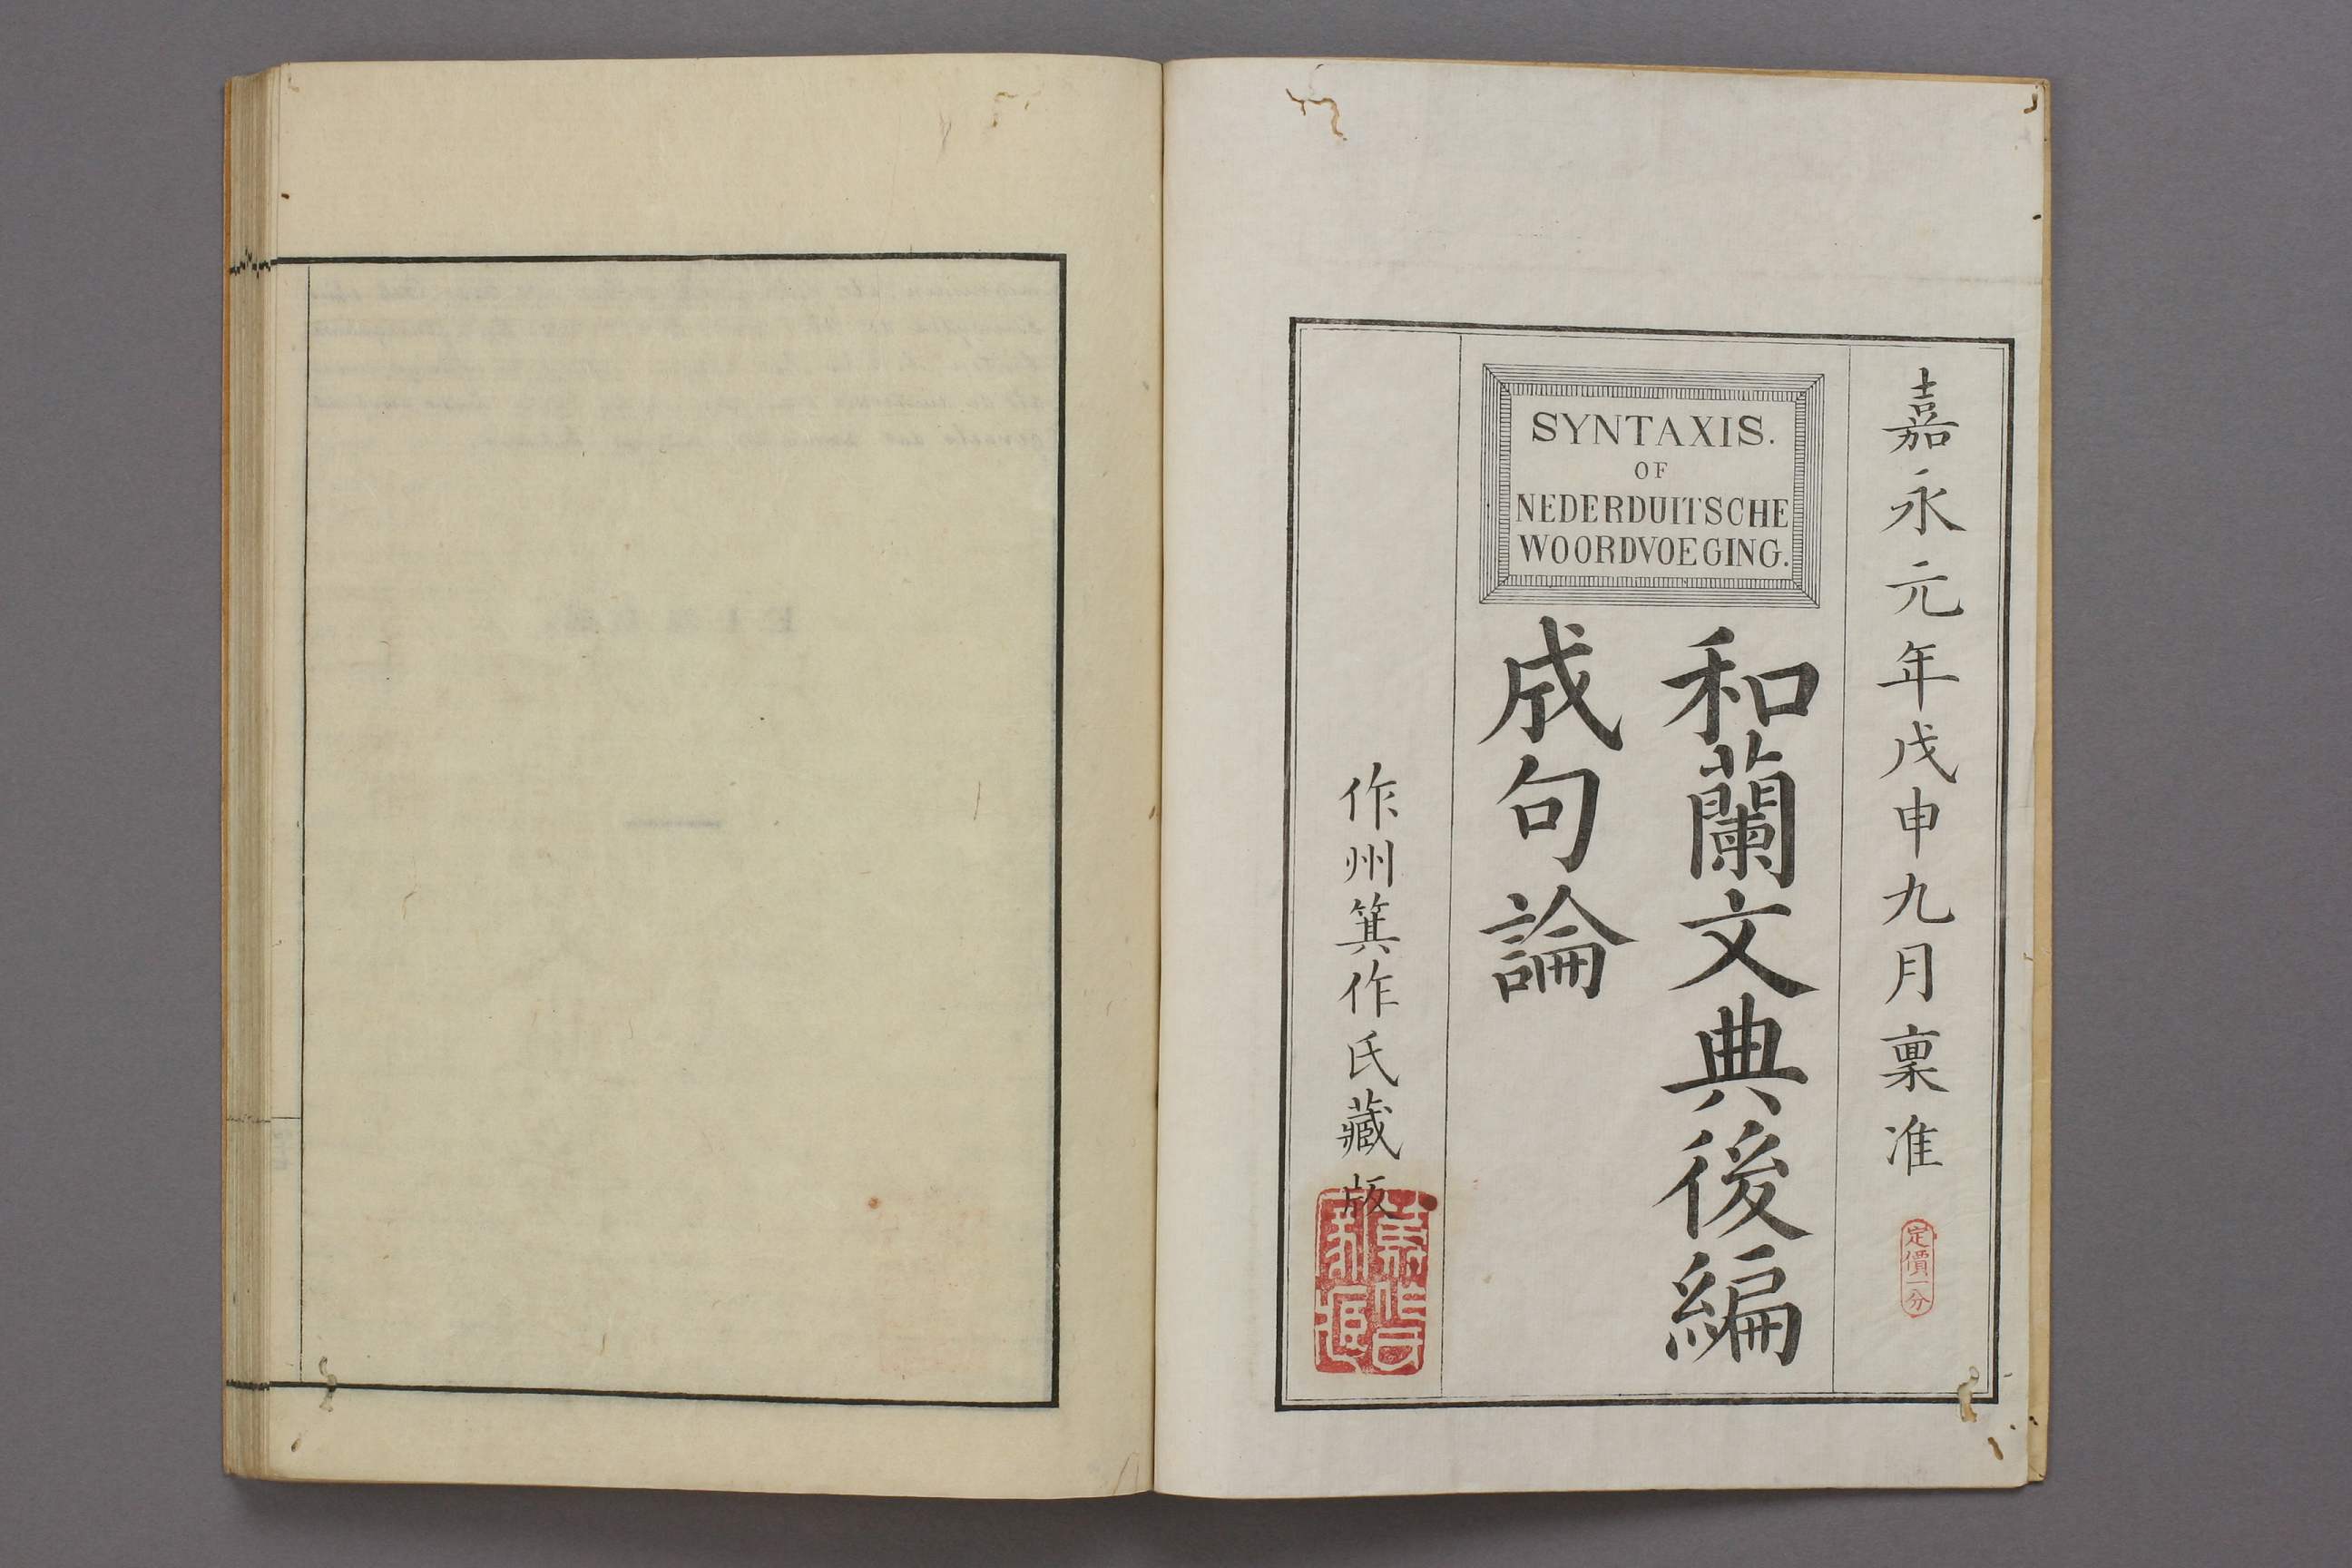 嘉永元年戊申九月稟准
定價一分
SYNTAXIS.
OF
NEDERDUITSCHE
WOORDVOEGING.
和蘭文典後編
成句論
作州箕作氏藏版